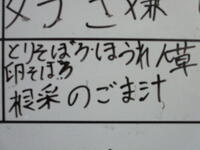 とりそぼろ・ほうれん草
卵そぼろ
根菜のごま汁